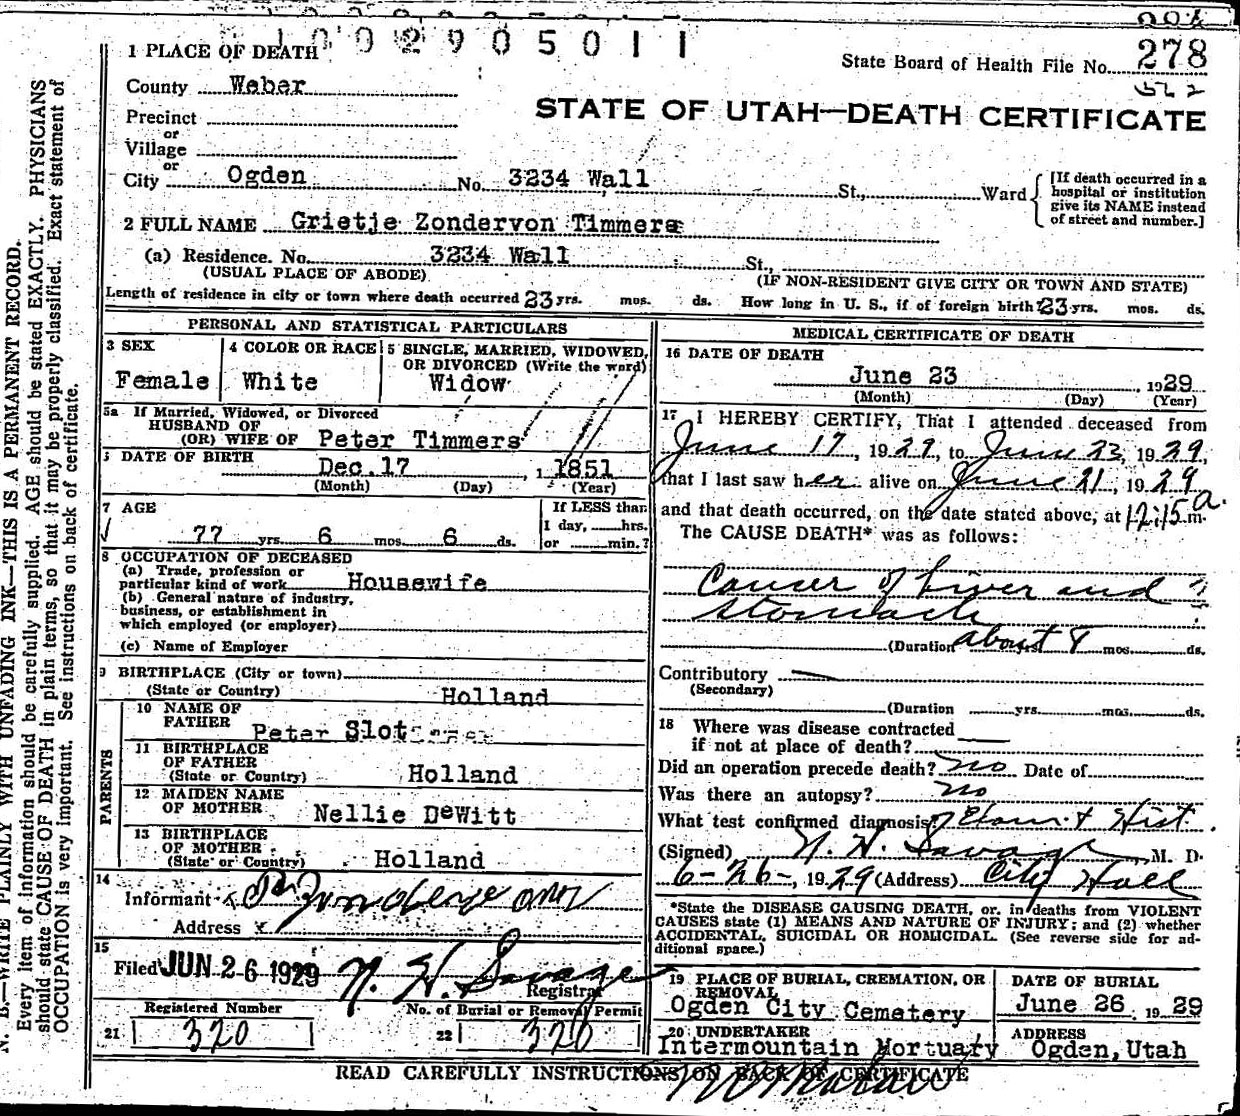 1 0 0 2 9 0 5 0 1 1
1 PLACE OF DEATH
County Weber
Precinct
or
Village
or
City Ogden No. 3234 Wall St., Ward
State Board of Health File No. 278
STATE OF UTAH—DEATH CERTIFICATE
[If death occurred in a
hospital or institution
give its NAME instead
of street and number.]
2 FULL NAME Grietje Zondervon Timmers
(a) Residence. No. 3234 Wall St.,
(USUAL PLACE OF ABODE) (IF NON-RESIDENT GIVE CITY OR TOWN AND STATE)
Length of residence in city or town where death occurred 23 yrs. mos. ds. How long in U. S., if of foreign birth? 23 yrs. mos. ds.
PERSONAL AND STATISTICAL PARTICULARS
3 SEX
Female
4 COLOR OR RACE
White
5 SINGLE, MARRIED, WIDOWED,
OR DIVORCED (Write the word)
Widow
5a If Married, Widowed, or Divorced
HUSBAND OF
(OR) WIFE OF Peter Timmers
DATE OF BIRTH Dec. 17, 1851
(Month) (Day) (Year)
7 AGE If LESS than
1 day, hrs.
77 yrs. 6 mos. 6 ds. or min.?
8 OCCUPATION OF DECEASED
(a) Trade, profession or
particular kind of work Housewife
(b) General nature of industry,
business, or establishment in
which employed (or employer)
(c) Name of Employer
9 BIRTHPLACE (City or town)
(State or Country) Holland
PARENTS
10 NAME OF
FATHER Peter Slot
11 BIRTHPLACE
OF FATHER
(State or Country) Holland
12 MAIDEN NAME
OF MOTHER Nellie DeWitt
13 BIRTHPLACE
OF MOTHER
(State or Country) Holland
14
Informant
Address
15
Filed JUN 26 1929 N. H. Savage
Registrar
Registered Number No. of Burial or Removal Permit
21 320 22 320
MEDICAL CERTIFICATE OF DEATH
16 DATE OF DEATH
June 23, 1929
(Month) (Day) (Year)
17 I HEREBY CERTIFY, That I attended deceased from
June 17, 1929, to June 23, 1929,
that I last saw her alive on June 21, 1929
and that death occurred, on the date stated above, at 12:15 a. m.
The CAUSE DEATH* was as follows:
Cancer of Liver and
stomach
(Duration about 8 mos. ds.
Contributory
(Secondary)
(Duration yrs. mos. ds.
18 Where was disease contracted
if not at place of death?
Did an operation precede death? no Date of
Was there an autopsy? no
What test confirmed diagnosis? Exam & Hist.
(Signed) N. H. Savage M. D.
6-26-, 1929 (Address) City Hall
*State the DISEASE CAUSING DEATH, or, in deaths from VIOLENT
CAUSES state (1) MEANS AND NATURE OF INJURY; and (2) whether
ACCIDENTAL, SUICIDAL OR HOMICIDAL. (See reverse side for ad-
ditional space.)
19 PLACE OF BURIAL, CREMATION, OR
REMOVAL
Ogden City Cemetery
DATE OF BURIAL
June 26, 1929
20 UNDERTAKER
Intermountain Mortuary
ADDRESS
Ogden, Utah
READ CAREFULLY INSTRUCTIONS ON BACK OF CERTIFICATE
N. B.—WRITE PLAINLY WITH UNFADING INK—THIS IS A PERMANENT RECORD.
Every item of information should be carefully supplied. AGE should be stated EXACTLY. PHYSICIANS
should state CAUSE OF DEATH in plain terms, so that it may be properly classified. Exact statement of
OCCUPATION is very important. See instructions on back of certificate.